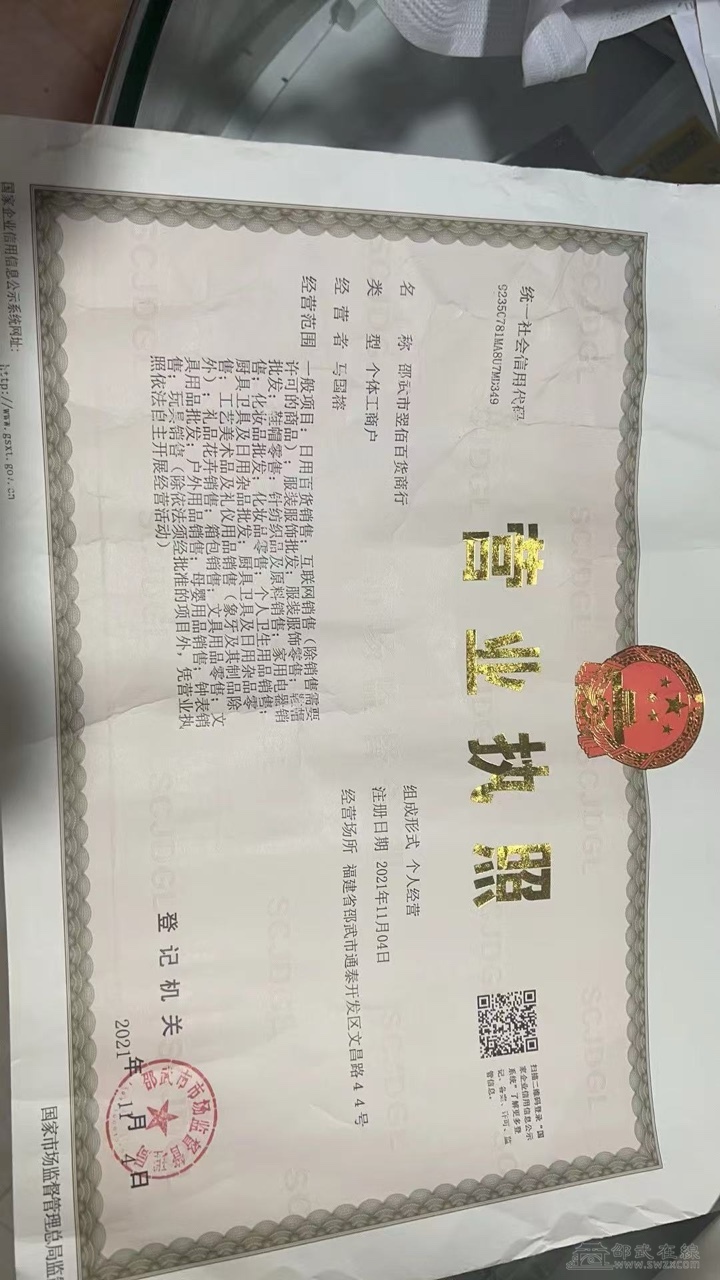 营业执照
统一社会信用代码
扫描二维码登录“国
家企业信用信息公示
系统”了解更多登
记、备案、许可、监
管信息。
名 称 邵武市翌佰百货商行
类 型 个体工商户
经 营 者 马国榕
经营范围 一般项目：日用百货销售；互联网销售（除销售需要
许可的商品）；服装服饰批发；服装服饰零售；鞋帽
批发；鞋帽零售；针纺织品及原料销售；家用电器销
售；化妆品批发；化妆品零售；个人卫生用品销售；
厨具卫具及日用杂品批发；厨具卫具及日用杂品零
售；工艺美术品及礼仪用品销售（象牙及其制品除
外）；礼品花卉销售；箱包销售；文具用品零售；文
具用品批发；户外用品销售；母婴用品销售；钟表销
售；玩具销售（除依法须经批准的项目外，凭营业执
照依法自主开展经营活动）
组成形式 个人经营
注册日期 2021年11月04日
经营场所 福建省邵武市通泰开发区文昌路44号
登记机关
邵武市市场监督管
2021年 11月 4日
国家企业信用信息公示系统网址：
http://www.gsxt.gov.cn
国家市场监督管理总局监
邵武在線
www.swzx.com